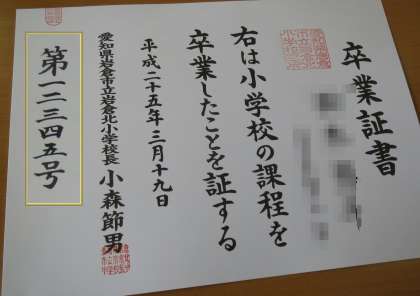 卒業証書
右は小学校の課程を
卒業したことを証する
平成二十五年三月十九日
愛知県岩倉市立岩倉北小学校長 小森節男
第一二三四五号